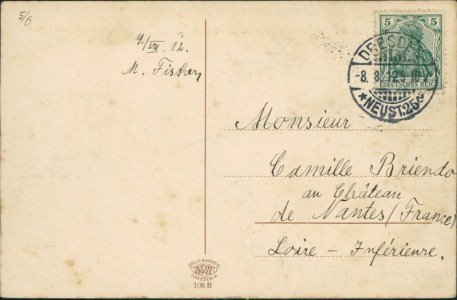 5/6
M. Fischer
5 5
DRESDEN
*NEUST.25
Monsieur
Camille Briendo
au Château
de Nantes (France)
Loire - Inférieure.
108 B